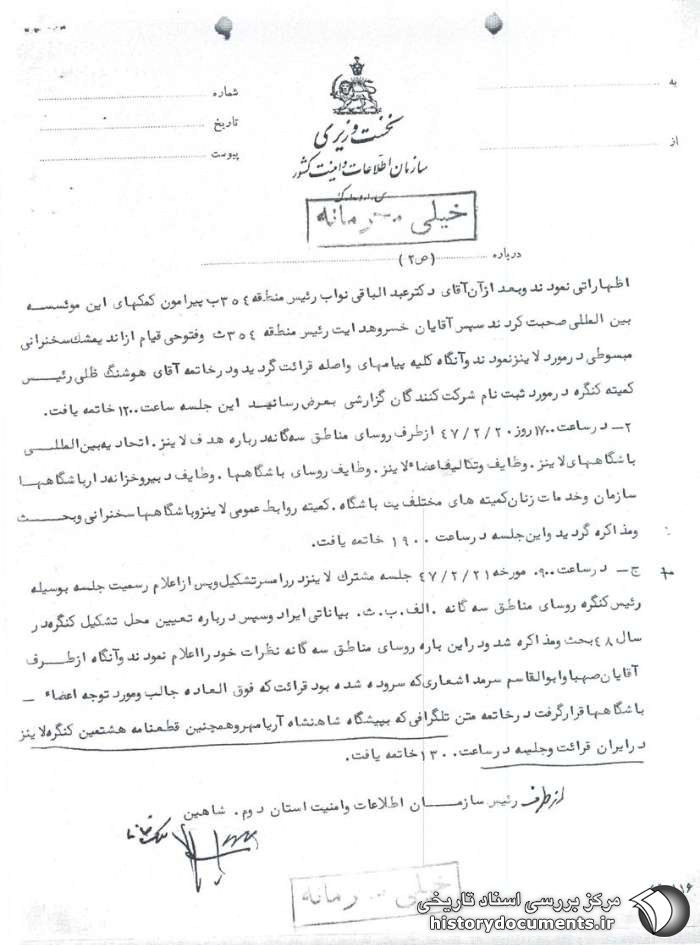 به
شماره
تاریخ
از
پیوست
نخست وزیری
سازمان اطلاعات و امنیت کشور
خیلی محرمانه
درباره (ص۲)
اظهاراتی نمودند وبعد ازآن آقای دکترعبدالباقی نواب رئیس منطقه ۳۵۴ب پیرامون کمکهای این موئسسه
بین المللی صحبت کردند سپس آقایان خسروهدایت رئیس منطقه ۳۵۴ث وفتوحی قیام ازاندیمشک سخنرانی
مبسوطی درمورد لاینزنمودند وآنگاه کلیه پیامهای واصله قرائت گردید ودرخاتمه آقای هوشنگ ظلی رئیس
کمیته کنگره درمورد ثبت نام شرکت کنندگان گزارشی بعرض رسانید این جلسه ساعت ۱۲۰۰ خاتمه یافت.
۲ــ درساعت ۱۷۰۰ روز ۴۷/۲/۲۰ ازطرف روسای مناطق سه گانه درباره هدف لاینز. اتحادیه بین المللی
باشگاههای لاینز. وظایف وتکالیف اعضاء لاینز. وظایف روسای باشگاهها. وظایف دبیروخزانه دارباشگاهها
سازمان وخدمات زنان کمیته های مختلف یک باشگاه. کمیته روابط عمومی لاینزوباشگاهها سخنرانی وبحث
ومذاکره گردید واین جلسه درساعت ۱۹۰۰ خاتمه یافت.
ج ــ درساعت ۹۰۰ مورخه ۴۷/۲/۲۱ جلسه مشترک لاینزدررامسرتشکیل وپس ازاعلام رسمیت جلسه بوسیله
رئیس کنگره روسای مناطق سه گانه .الف.ب.ث. بیاناتی ایراد وسپس درباره تعیین محل تشکیل کنگره در
سال ۴۸ بحث ومذاکره شد ودراین باره روسای مناطق سه گانه نظرات خودرا اعلام نمودند وآنگاه ازطرف
آقایان صهبا وابوالقاسم سرمد اشعاری که سروده شده بود قرائت که فوق العاده جالب ومورد توجه اعضاء ــ
باشگاهها قرارگرفت درخاتمه متن تلگرافی که بپیشگاه شاهنشاه آریامهروهمچنین قطعنامه هشتمین کنگره لاینز
درایران قرائت وجلسه درساعت ۱۳۰۰ خاتمه یافت.
ازطرف رئیس سازمان اطلاعات وامنیت استان دوم. شاهین
خیلی محرمانه
مرکز بررسی اسناد تاریخی
historydocuments.ir